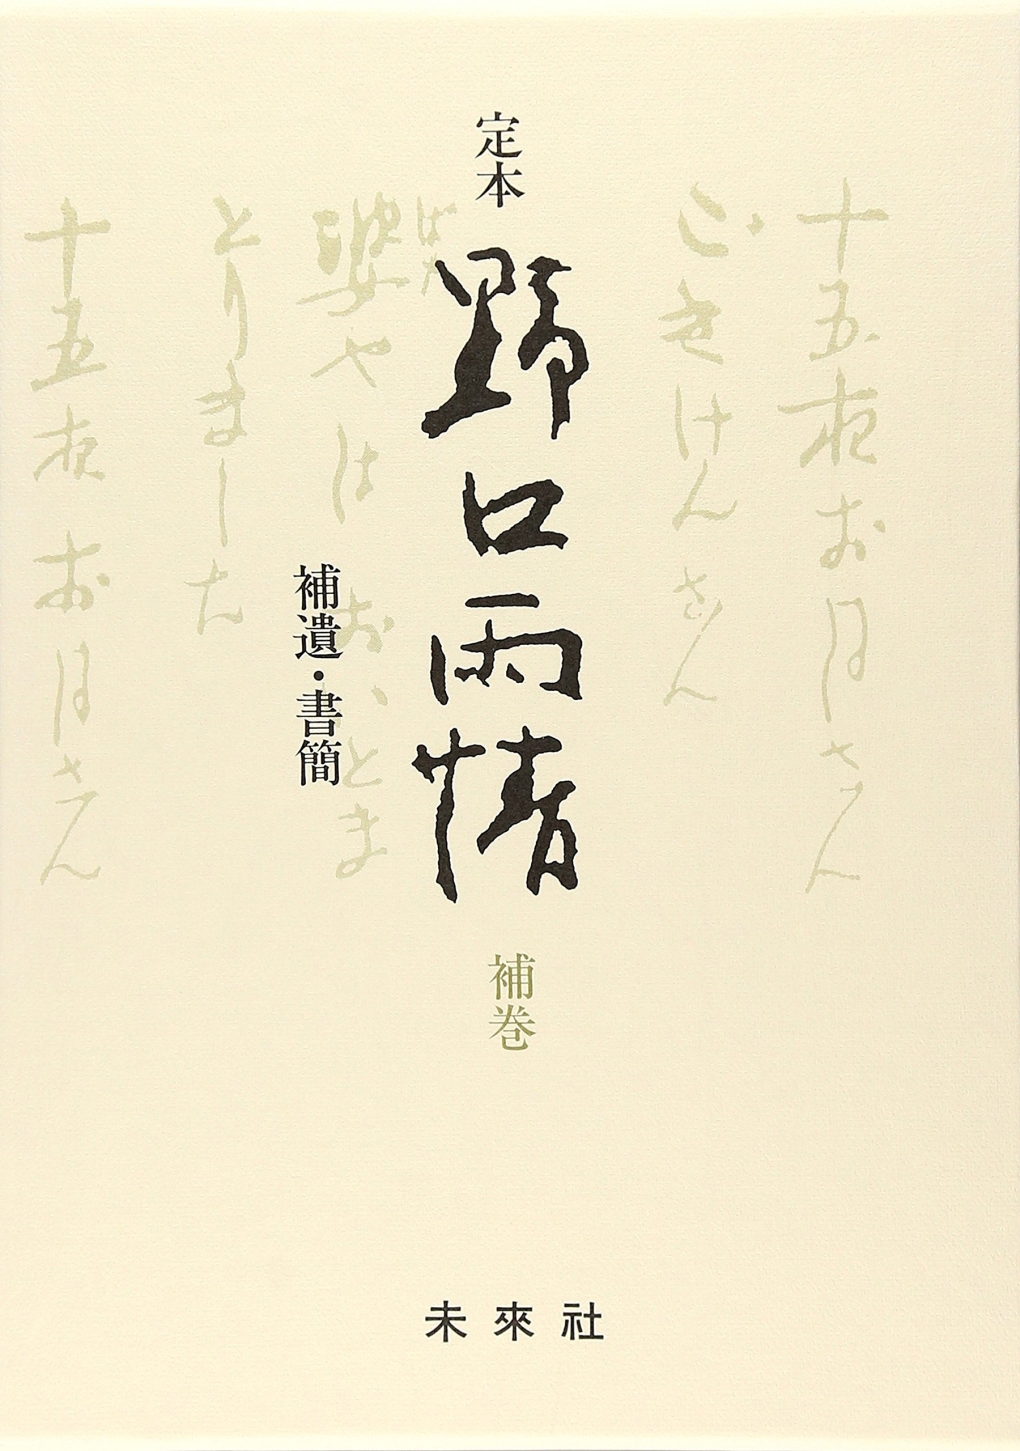 定本
野口雨情
補巻
補遺・書簡
十五夜お月さん
ごきけんさん
婆やは おいとま
ばあ
とりました
十五夜お月さん
未來社